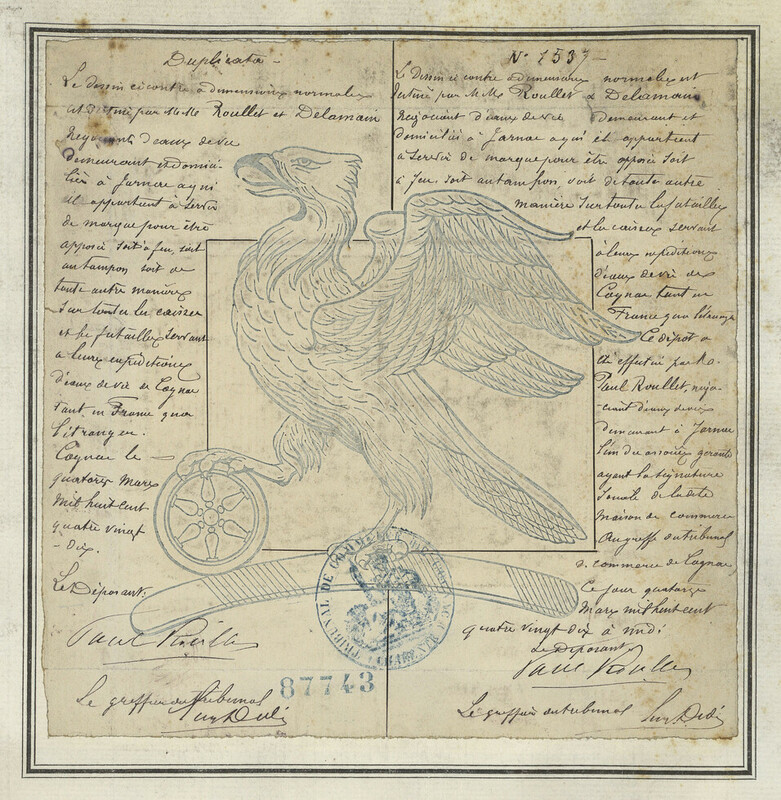 Duplicata
Le dessin ci contre à dimensions normales
est déposé par MM. Roullet et Delamain
Négociants d'eaux de vie
demeurant et domici-
liés à Jarnac
appartient à servir
de marque pour être
apposée soit à feu, soit
au tampon soit de
toute autre manière
sur toutes les caisses
et les futailles servant
à leurs expéditions
d'eaux de vie de Cognac
tant en France qu'à
l'étranger.
Cognac le
quatorze Mars
Mil huit cent
quatre vingt
-dix.
Le Déposant:
Paul Roullet
Le greffier du Tribunal
N° 1537
Le dessin ci contre à dimensions normales est
par MM. Roullet & Delamain
Négociant d'eaux de vie demeurant et
domiciliés à Jarnac et appartient
à servir de marque pour être apposée soit
à feu, soit au tampon, soit de toute autre
manière sur toutes les futailles
et les caisses servant
à leurs expéditions
d'eaux de vie de
Cognac tant en
France qu'à l'étranger
Ce dépôt a
été effectué par M.
Paul Roullet, négo-
ciant d'eaux de vie
demeurant à Jarnac
l'un des associés gérants
ayant la signature
sociale de la dite
maison de commerce
Au greffe du tribunal
de commerce de Cognac
Ce jour quatorze
Mars mil huit cent
quatre vingt dix à midi
Le Déposant
Paul Roullet
Le greffier du tribunal
TRIBUNAL DE COMMERCE
87743